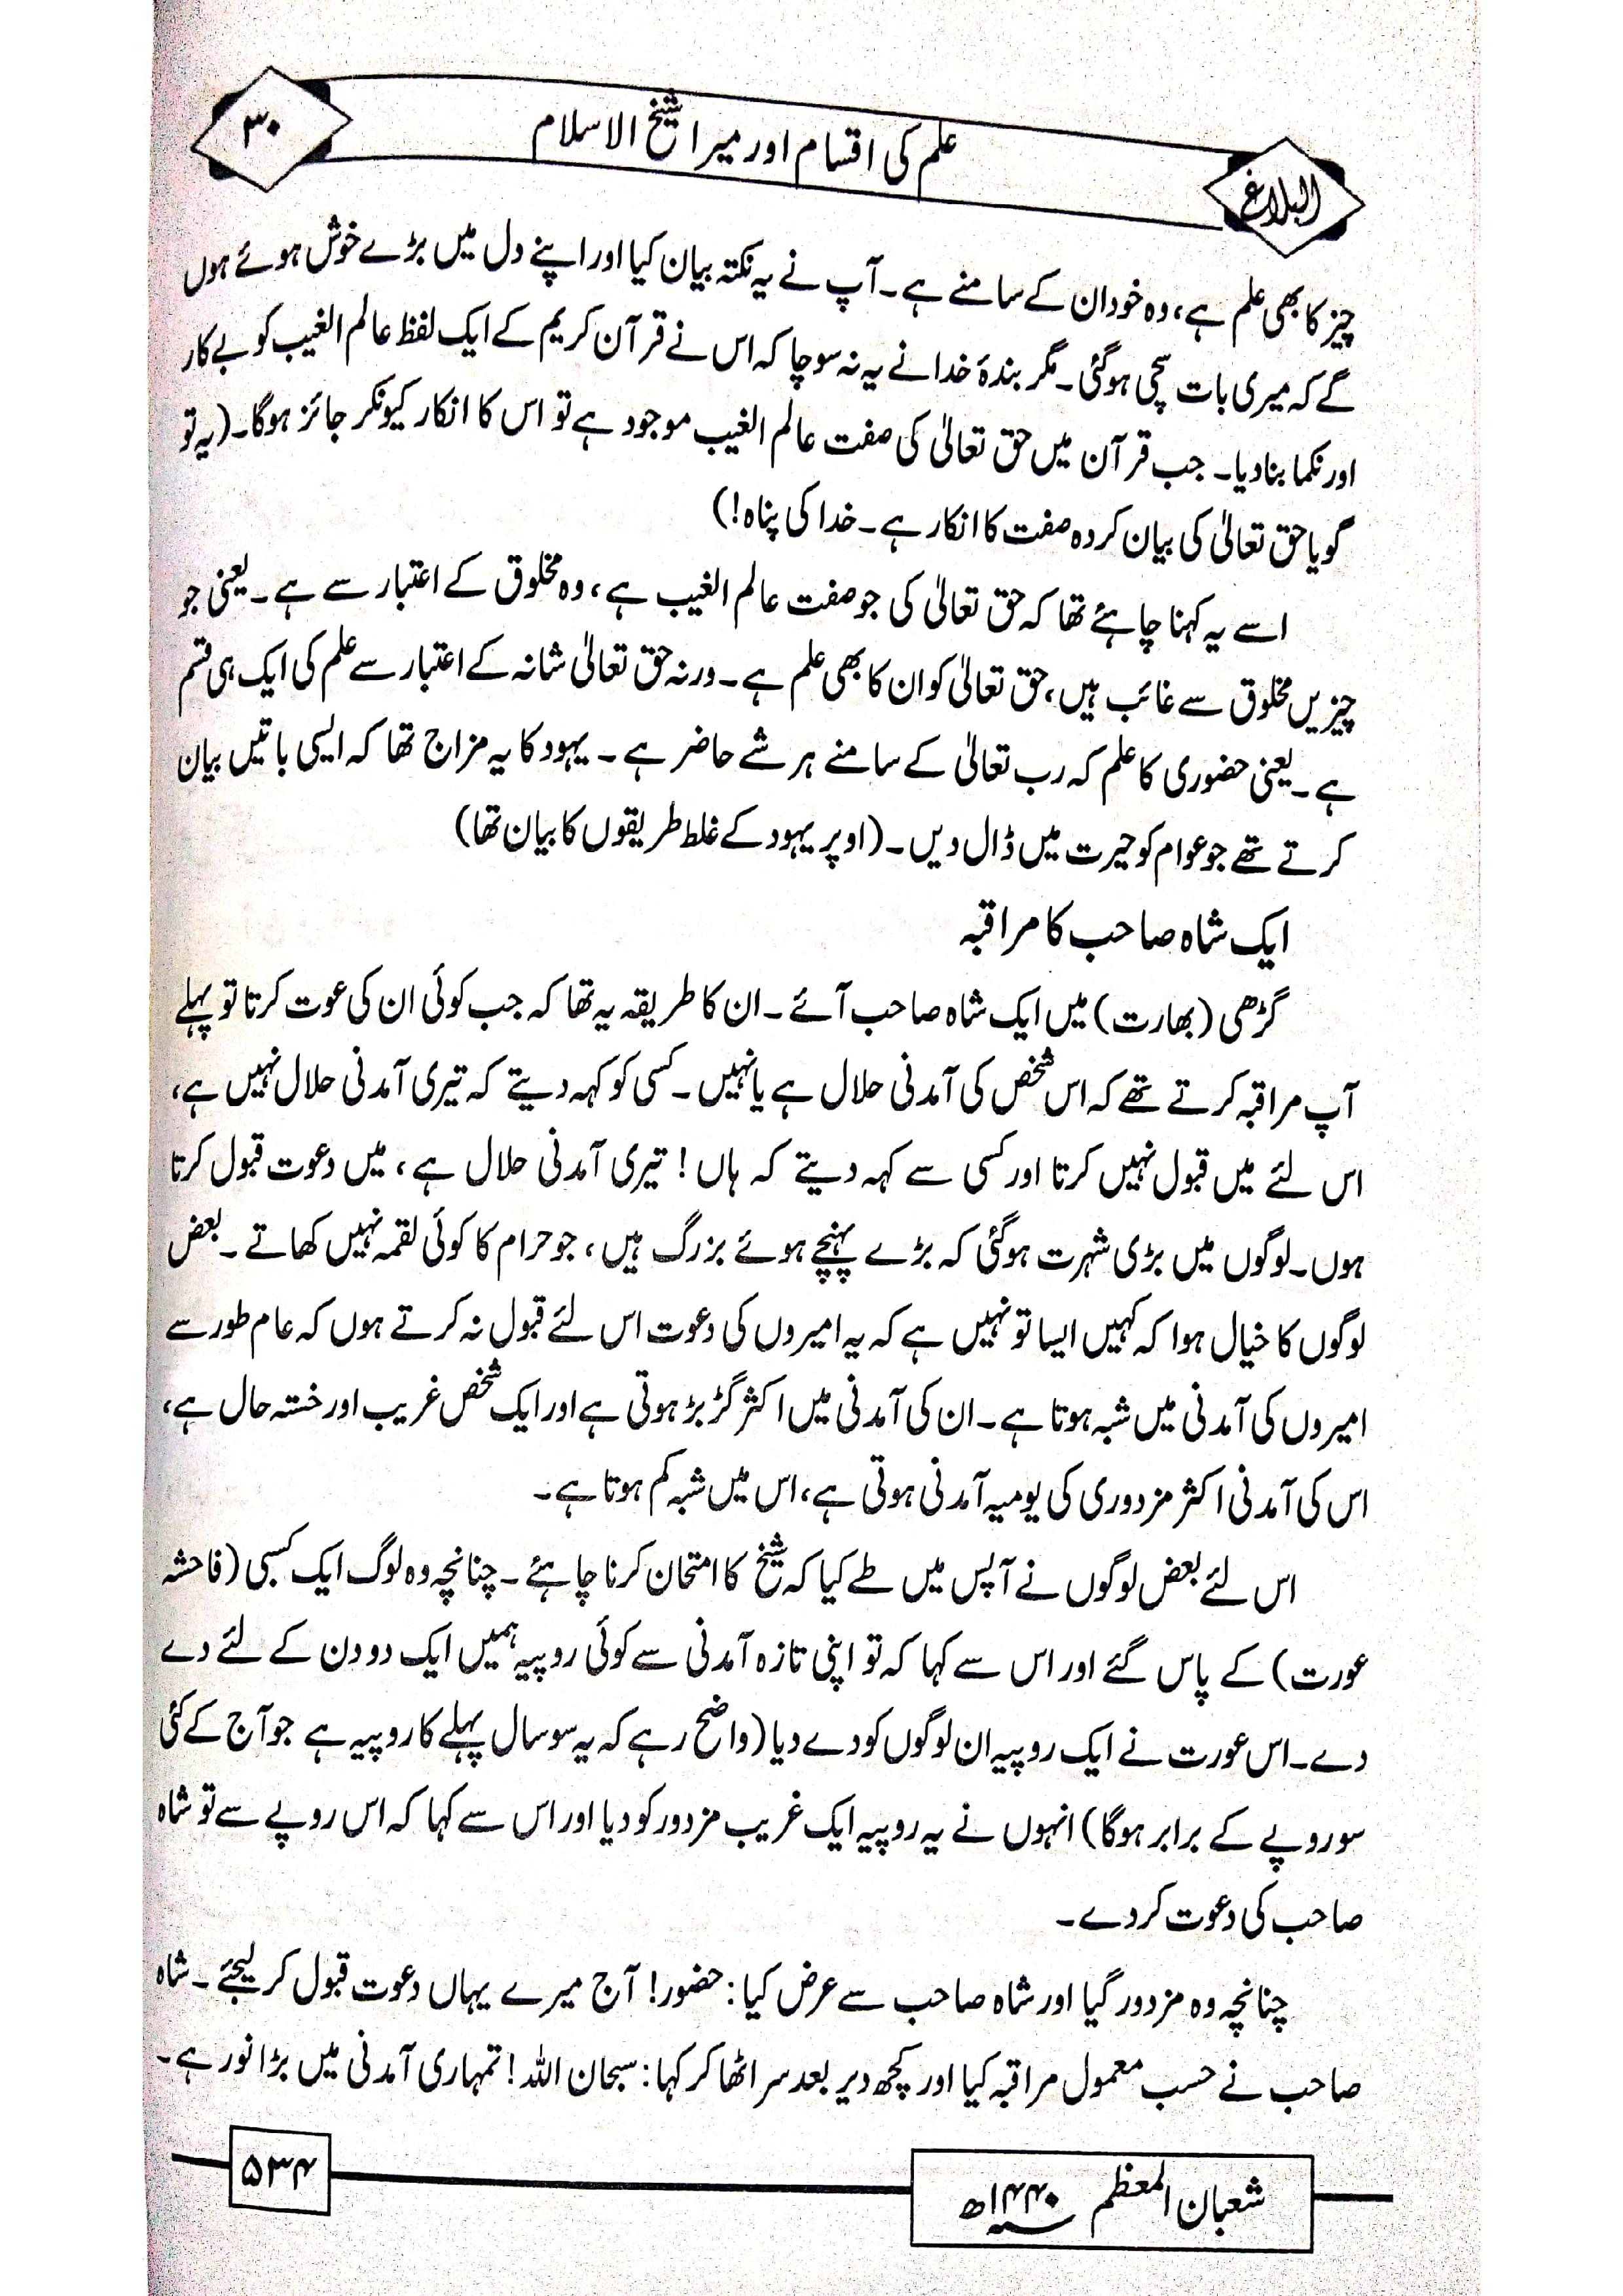 البلاغ
علم کی اقسام اور میرا شیخ الاسلام
۳۰
چیز کا بھی علم ہے، وہ خود ان کے سامنے ہے۔ آپ نے یہ نکتہ بیان کیا اور اپنے دل میں بڑے خوش ہوئے ہوں
گے کہ میری بات سچی ہوگئی۔ مگر بندۂ خدا نے یہ نہ سوچا کہ اس نے قرآن کریم کے ایک لفظ عالم الغیب کو بے کار
اور نکما بنادیا۔ جب قرآن میں حق تعالیٰ کی صفت عالم الغیب موجود ہے تو اس کا انکار کیونکر جائز ہوگا۔ (یہ تو
گویا حق تعالیٰ کی بیان کردہ صفت کا انکار ہے۔ خدا کی پناہ!)
اسے یہ کہنا چاہئے تھا کہ حق تعالیٰ کی جو صفت عالم الغیب ہے، وہ مخلوق کے اعتبار سے ہے۔ یعنی جو
چیزیں مخلوق سے غائب ہیں، حق تعالیٰ کو ان کا بھی علم ہے۔ ورنہ حق تعالیٰ شانہ کے اعتبار سے علم کی ایک ہی قسم
ہے۔ یعنی حضوری کا علم کہ رب تعالیٰ کے سامنے ہر شے حاضر ہے۔ یہود کا یہ مزاج تھا کہ ایسی باتیں بیان
کرتے تھے جو عوام کو حیرت میں ڈال دیں۔ (اوپر یہود کے غلط طریقوں کا بیان تھا)
ایک شاہ صاحب کا مراقبہ
گڑھی (بھارت) میں ایک شاہ صاحب آئے۔ ان کا طریقہ یہ تھا کہ جب کوئی ان کی عوت کرتا تو پہلے
آپ مراقبہ کرتے تھے کہ اس شخص کی آمدنی حلال ہے یا نہیں۔ کسی کو کہہ دیتے کہ تیری آمدنی حلال نہیں ہے،
اس لئے میں قبول نہیں کرتا اور کسی سے کہہ دیتے کہ ہاں! تیری آمدنی حلال ہے، میں دعوت قبول کرتا
ہوں۔ لوگوں میں بڑی شہرت ہوگئی کہ بڑے پہنچے ہوئے بزرگ ہیں، جو حرام کا کوئی لقمہ نہیں کھاتے۔ بعض
لوگوں کا خیال ہوا کہ کہیں ایسا تو نہیں ہے کہ یہ امیروں کی دعوت اس لئے قبول نہ کرتے ہوں کہ عام طور سے
امیروں کی آمدنی میں شبہ ہوتا ہے۔ ان کی آمدنی میں اکثر گڑبڑ ہوتی ہے اور ایک شخص غریب اور خستہ حال ہے،
اس کی آمدنی اکثر مزدوری کی یومیہ آمدنی ہوتی ہے، اس میں شبہ کم ہوتا ہے۔
اس لئے بعض لوگوں نے آپس میں طے کیا کہ شیخ کا امتحان کرنا چاہئے۔ چنانچہ وہ لوگ ایک کسبی (فاحشہ
عورت) کے پاس گئے اور اس سے کہا کہ تو اپنی تازہ آمدنی سے کوئی روپیہ ہمیں ایک دو دن کے لئے دے
دے۔ اس عورت نے ایک روپیہ ان لوگوں کو دے دیا (واضح رہے کہ یہ سو سال پہلے کا روپیہ ہے جو آج کے کئی
سو روپے کے برابر ہوگا) انہوں نے یہ روپیہ ایک غریب مزدور کو دیا اور اس سے کہا کہ اس روپے سے تو شاہ
صاحب کی دعوت کردے۔
چنانچہ وہ مزدور گیا اور شاہ صاحب سے عرض کیا: حضور! آج میرے یہاں دعوت قبول کر لیجئے۔ شاہ
صاحب نے حسب معمول مراقبہ کیا اور کچھ دیر بعد سر اٹھا کر کہا: سبحان اللہ! تمہاری آمدنی میں بڑا نور ہے۔
شعبان المعظم ۱۴۴۰ھ
۵۳۴